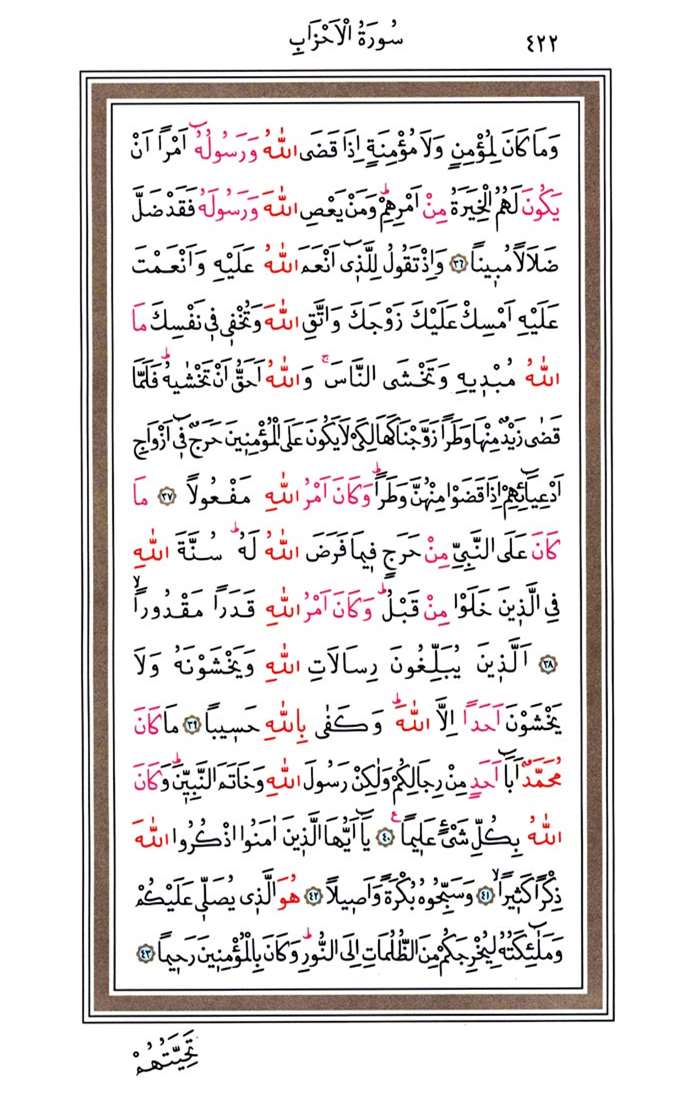 ٤٢٢
سُورَةُ الْاَحْزَابِ
وَمَا كَانَ لِمُؤْمِنٍ وَلَا مُؤْمِنَةٍ اِذَا قَضَى اللّٰهُ وَرَسُولُهُٓ اَمْراً اَنْ
يَكُونَ لَهُمُ الْخِيَرَةُ مِنْ اَمْرِهِمْۜ وَمَنْ يَعْصِ اللّٰهَ وَرَسُولَهُ فَقَدْ ضَلَّ
ضَلَالاً مُب۪يناً ﴿٣٦﴾ وَاِذْ تَقُولُ لِلَّـذ۪ٓي اَنْعَمَ اللّٰهُ عَلَيْهِ وَاَنْعَمْتَ
عَلَيْهِ اَمْسِكْ عَلَيْكَ زَوْجَكَ وَاتَّقِ اللّٰهَ وَتُخْف۪ي ف۪ي نَفْسِكَ مَا
اللّٰهُ مُبْد۪يهِ وَتَخْشَى النَّاسَۚ وَاللّٰهُ اَحَقُّ اَنْ تَخْشٰيهُۜ فَلَمَّا
قَضٰى زَيْدٌ مِنْهَا وَطَراً زَوَّجْنَاكَهَا لِكَيْ لَا يَكُونَ عَلَى الْمُؤْمِن۪ينَ حَرَجٌ ف۪ٓي اَزْوَاجِ
اَدْعِيَٓائِهِمْ اِذَا قَضَوْا مِنْهُنَّ وَطَراًۜ وَكَانَ اَمْرُ اللّٰهِ مَفْعُولاً ﴿٣٧﴾ مَا
كَانَ عَلَى النَّبِيِّ مِنْ حَرَجٍ ف۪يمَا فَرَضَ اللّٰهُ لَهُۜ سُنَّةَ اللّٰهِ
فِي الَّذ۪ينَ خَلَوْا مِنْ قَبْلُۜ وَكَانَ اَمْرُ اللّٰهِ قَدَراً مَقْدُوراًۙ
﴿٣٨﴾ اَلَّذ۪ينَ يُبَلِّغُونَ رِسَالَاتِ اللّٰهِ وَيَخْشَوْنَهُ وَلَا
يَخْشَوْنَ اَحَداً اِلَّا اللّٰهَۜ وَكَفٰى بِاللّٰهِ حَس۪يباً ﴿٣٩﴾ مَا كَانَ
مُحَمَّدٌ اَبَٓا اَحَدٍ مِنْ رِجَالِكُمْ وَلٰكِنْ رَسُولَ اللّٰهِ وَخَاتَمَ النَّبِيّ۪نَۜ وَكَانَ
اللّٰهُ بِكُلِّ شَيْءٍ عَل۪يماًࣖ ﴿٤٠﴾ يَٓا اَيُّهَا الَّذ۪ينَ اٰمَنُوا اذْكُرُوا اللّٰهَ
ذِكْراً كَث۪يراًۙ ﴿٤١﴾ وَسَبِّحُوهُ بُكْرَةً وَاَص۪يلاً ﴿٤٢﴾ هُوَ الَّذ۪ي يُصَلّ۪ي عَلَيْكُمْ
وَمَلٰٓئِكَتُهُ لِيُخْرِجَكُمْ مِنَ الظُّلُمَاتِ اِلَى النُّورِۜ وَكَانَ بِالْمُؤْمِن۪ينَ رَح۪يماً ﴿٤٣﴾
تَحِيَّتُهُمْ